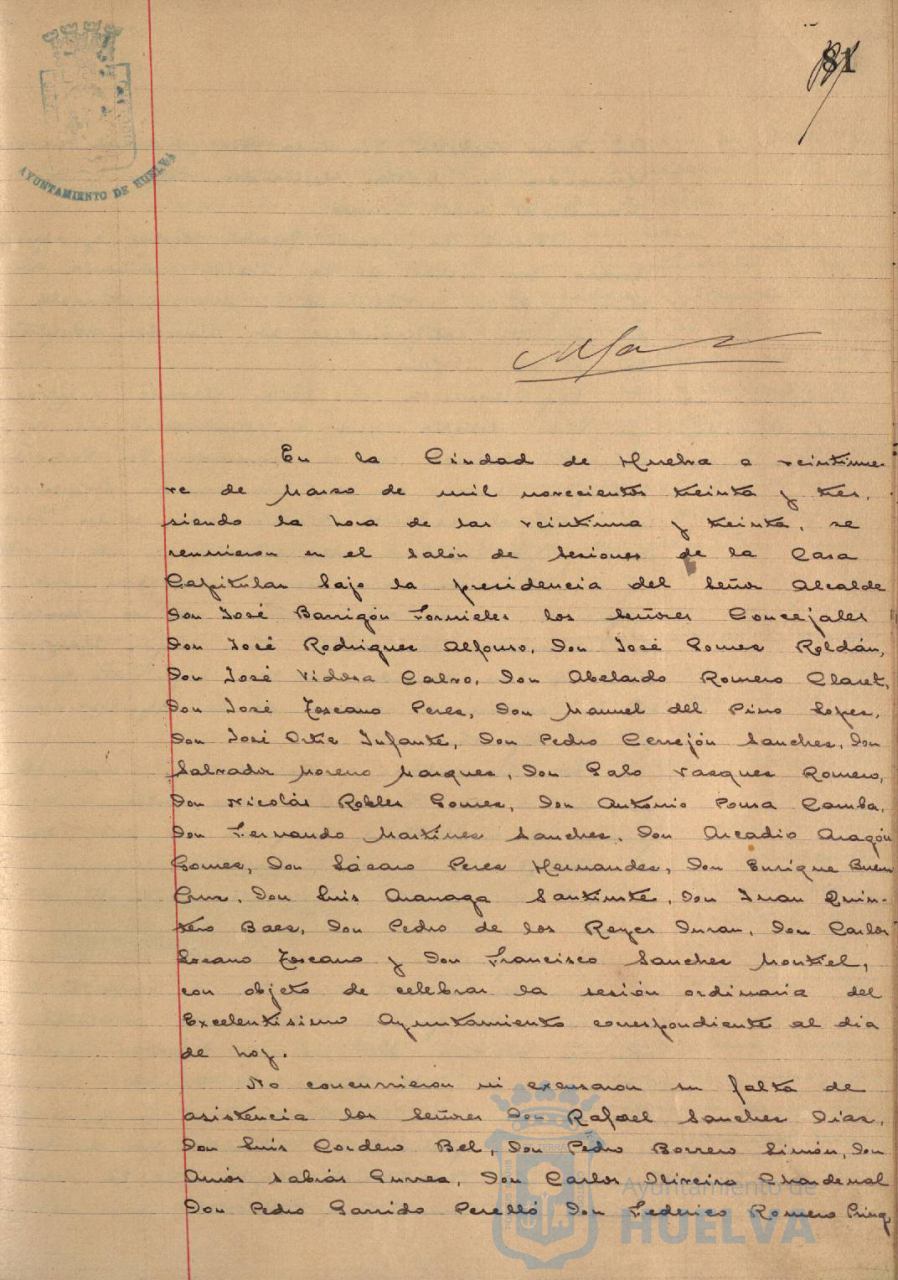 81
AYUNTAMIENTO DE HUELVA
En la Ciudad de Huelva a veintinue-
ve de Marzo de mil novecientos treinta y tres,
siendo la hora de las veintiuna y treinta, se
reunieron en el Salón de Sesiones de la Casa
Capitular bajo la presidencia del Señor Alcalde
Don José Barrigón Fornieles los Señores Concejales
Don José Rodriguez Alfonso, Don José Gomez Roldán,
Don José Vidosa Calvo, Don Abelardo Romero Claret,
Don José Toscano Perez, Don Manuel del Pino Lopez,
Don José Ortiz Infante, Don Pedro Cerrejón Sanchez, Don
Salvador Moreno Marquez, Don Galo Vazquez Romero,
Don Nicolás Robles Gomez, Don Antonio Pousa Camba,
Don Fernando Martinez Sanchez, Don Arcadio Aragón
Gomez, Don Lázaro Perez Hernandez, Don Enrique Buen
Cruz, Don Luis Aranaga Santinte, Don Juan Quin-
tero Baez, Don Pedro de los Reyes Duran, Don Carlos
Lozano Toscano y Don Francisco Sanchez Montiel,
con objeto de celebrar la sesión ordinaria del
Excelentisimo Ayuntamiento correspondiente al dia
de hoy.
No concurrieron ni excusaron su falta de
asistencia los Señores Don Rafael Sanchez Diaz,
Don Luis Cordero Bel, Don Pedro Borrero Limón, Don
Amós Sabrás Gurrea, Don Carlos Oliveira Chardenal
Don Pedro Garrido Perelló Don Federico Romero
Ayuntamiento de
HUELVA